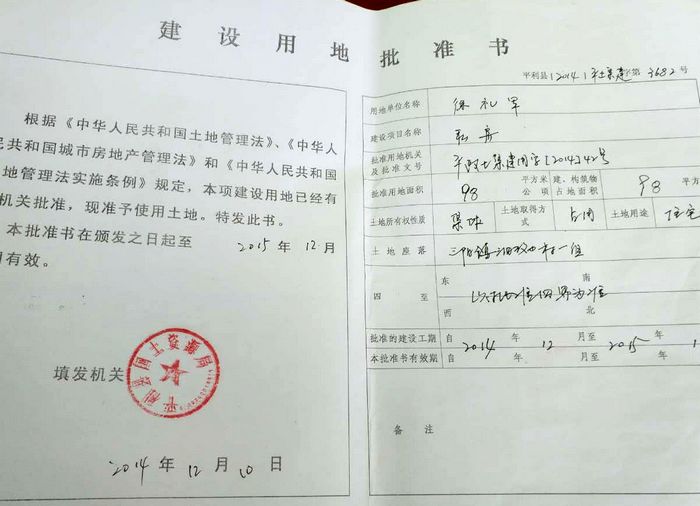 建设用地批准书
根据《中华人民共和国土地管理法》、《中华人
民共和国城市房地产管理法》和《中华人民共和国
地管理法实施条例》规定，本项建设用地已经有
机关批准，现准予使用土地。特发此书。
本批准书在颁发之日起至 2015 年 12 月
有效。
填发机关
平利县国土资源局
2014 年 12 月 10 日
平利县[2014]平土集建字第3682号
用地单位名称 徐礼军
建设项目名称
批准用地机关及批准文号 平政土集建用字[2014]42号
批准用地面积 98 平方米 公项 建、构筑物占地面积 98 平方
土地所有权性质 集体 土地取得方式 占用 土地用途 住宅
土地座落 三阳镇 村一组
四至 东 南 西 北
以 四界为准
批准的建设工期 自 2014 年 12 月至 2015 年 1
本批准书有效期 自 年 月至 年
备注